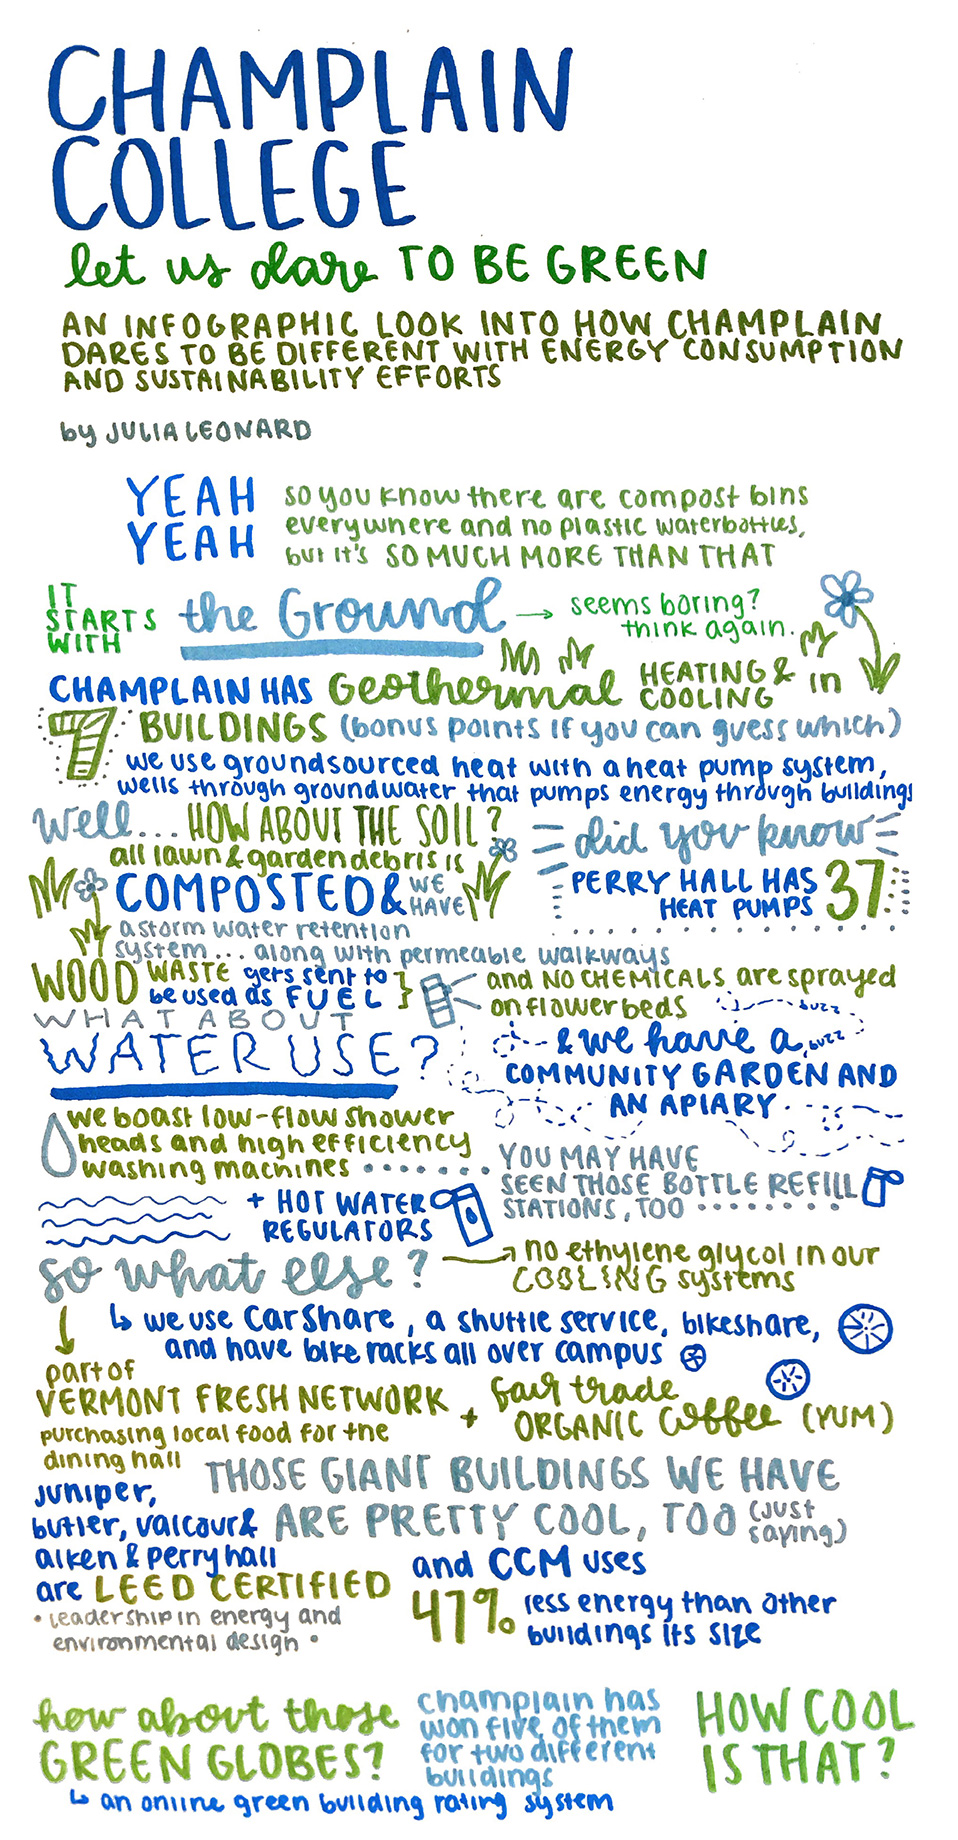 CHAMPLAIN
COLLEGE
let us dare TO BE GREEN
AN INFOGRAPHIC LOOK INTO HOW CHAMPLAIN
DARES TO BE DIFFERENT WITH ENERGY CONSUMPTION
AND SUSTAINABILITY EFFORTS
by JULIA LEONARD
YEAH
YEAH
so you know there are compost bins
everywhere and no plastic waterbottles,
but it's SO MUCH MORE THAN THAT
IT
STARTS
WITH
the Ground
seems boring?
think again.
CHAMPLAIN HAS Geothermal
HEATING &
COOLING
in
7 BUILDINGS (bonus points if you can guess which)
we use groundsourced heat with a heat pump system,
wells through groundwater that pumps energy through buildings
well... HOW ABOUT THE SOIL?
all lawn & garden debris is
COMPOSTED &
WE
HAVE
a storm water retention
system... along with permeable walkways
did you know
PERRY HALL HAS
HEAT PUMPS
37
WOOD
WASTE gets sent to
be used as FUEL
and NO CHEMICALS are sprayed
on flower beds
WHAT ABOUT
WATER USE?
buzz
& we have a
buzz
COMMUNITY GARDEN AND
AN APIARY
we boast low-flow shower
heads and high efficiency
washing machines
YOU MAY HAVE
SEEN THOSE BOTTLE REFILL
STATIONS, TOO
+ HOT WATER
REGULATORS
so what else?
no ethylene glycol in our
COOLING systems
we use CarShare, a shuttle service, bikeshare,
and have bike racks all over campus
part of
VERMONT FRESH NETWORK
purchasing local food for the
dining hall
+
fair trade
ORGANIC coffee (YUM)
THOSE GIANT BUILDINGS WE HAVE
ARE PRETTY COOL, TOO
(just
saying)
juniper,
butler, valcour &
aiken & perry hall
are LEED CERTIFIED
• leadership in energy and
environmental design •
and CCM uses
47%
less energy than other
buildings its size
how about those
GREEN GLOBES?
champlain has
won five of them
for two different
buildings
HOW COOL
IS THAT?
an online green building rating system